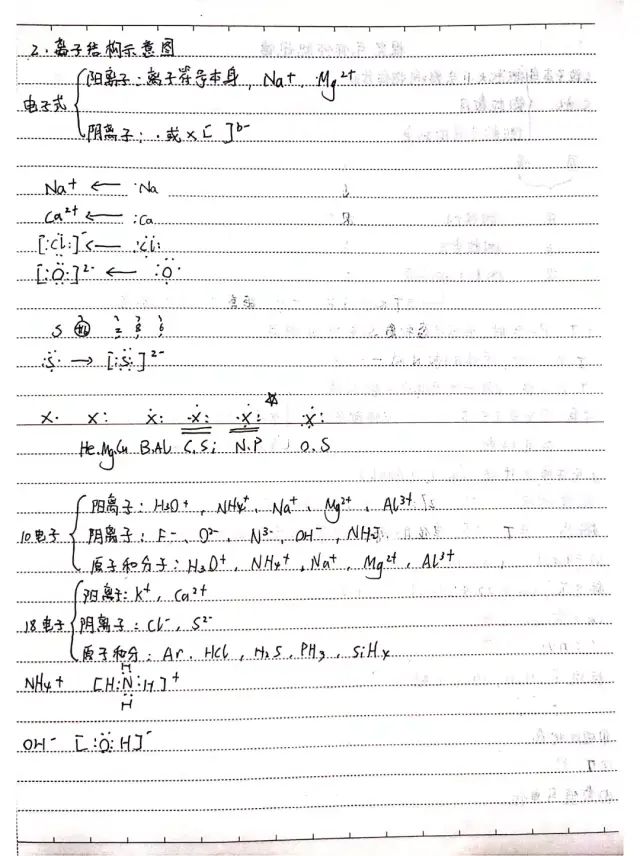 2. 离子结构示意图
阳离子：离子符号本身，Na⁺、Mg²⁺
电子式
阴离子：·或×[ ]ᵇ⁻
Na⁺ ← ·Na
Ca²⁺ ← :Ca
[:Cl:]⁻ ← :Cl:
[:O:]²⁻ ← :O:
S +16 2 8 6
:S· → [:S:]²⁻
X· X: Ẋ: ·Ẋ: ·Ẋ: :Ẋ:
He.Mg.Cu B.Al C.Si N.P O.S
阳离子：H₃O⁺，NH₄⁺、Na⁺、Mg²⁺、Al³⁺
10电子 阴离子：F⁻、O²⁻、N³⁻、OH⁻、NH₂⁻
原子和分子：H₃O⁺，NH₄⁺，Na⁺、Mg²⁺、Al³⁺
阳离子：K⁺，Ca²⁺
18电子 阴离子：Cl⁻，S²⁻
原子和分：Ar、HCl、H₂S、PH₃、SiH₄
H
NH₄⁺ [H:N:H]⁺
H
OH⁻ [:O:H]⁻